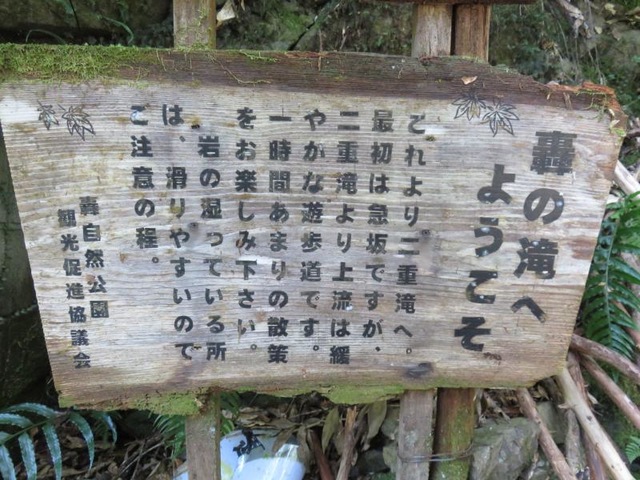 轟の滝へ
ようこそ
これより二重滝へ。
最初は急坂ですが、
二重滝より上流は緩
やかな遊歩道です。
一時間あまりの散策
をお楽しみ下さい。
岩の湿っている所
は、滑りやすいので
ご注意の程。
轟自然公園
観光促進協議会